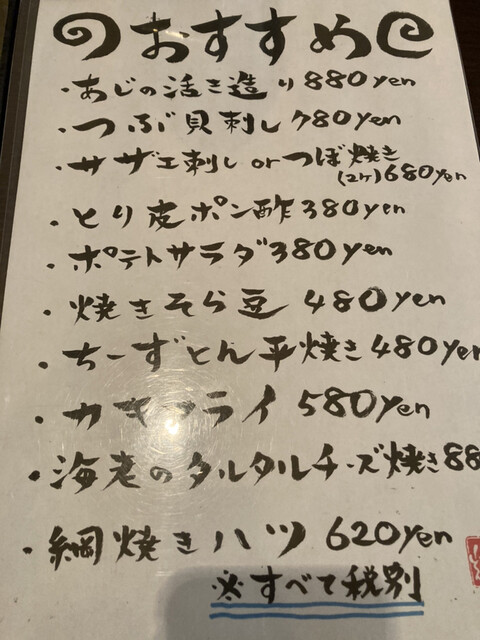 おすすめ
・あじの活き造り 880yen
・つぶ貝刺し 780yen
・サザエ刺し or つぼ焼き
(2ケ) 680yen
・とり皮ポン酢 380yen
・ポテトサラダ 380yen
・焼きそら豆 480yen
・ちーずとん平焼き 480yen
・カキフライ 580yen
・海老のタルタルチーズ焼き 88
・網焼きハツ 620yen
※すべて税別